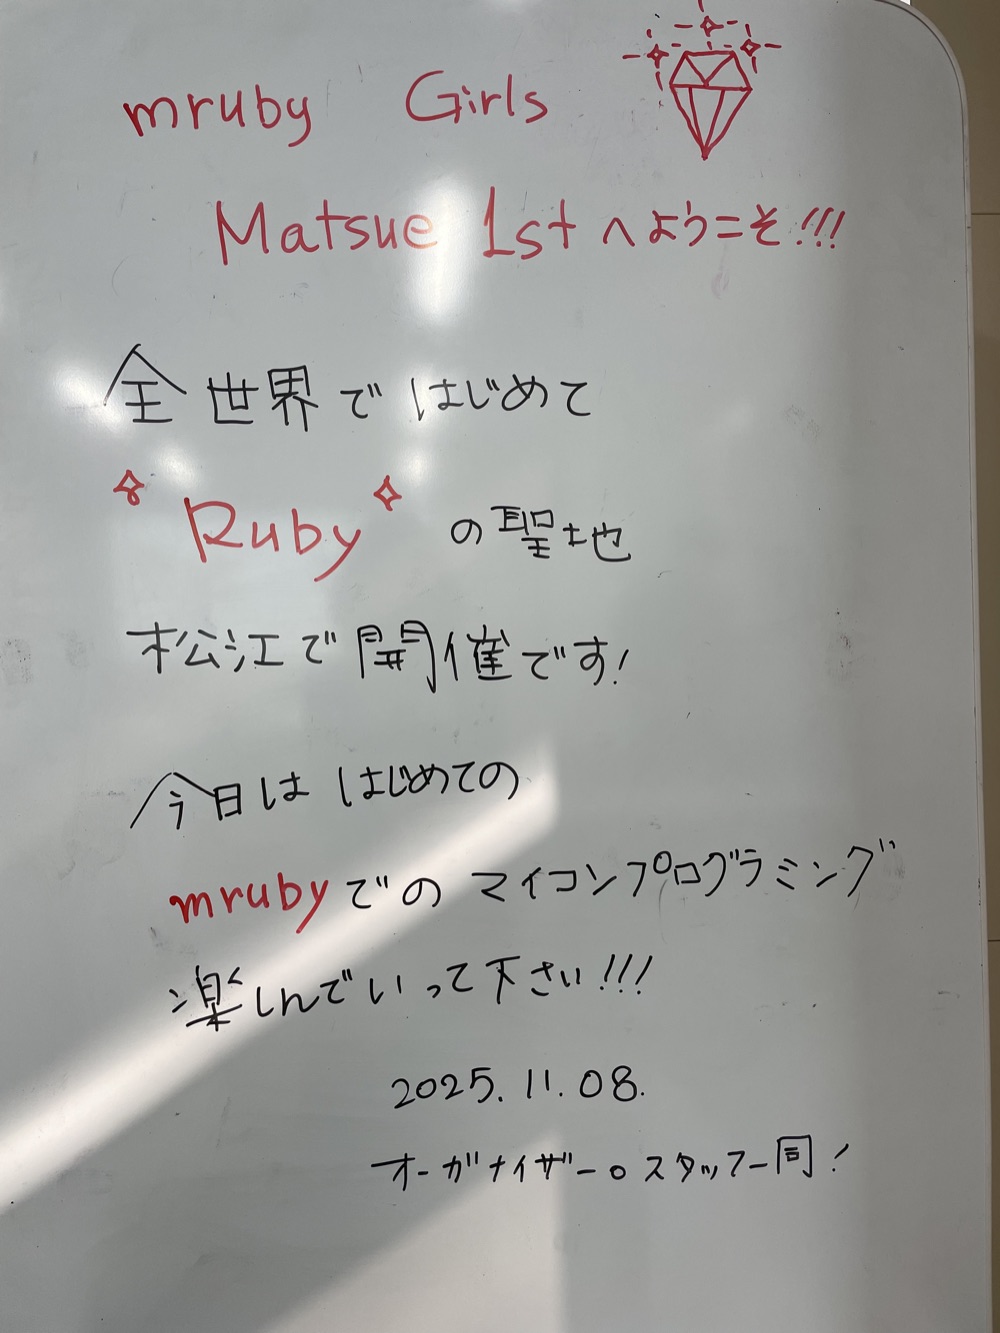 mruby Girls
Matsue 1stへようこそ!!!
全世界ではじめて
Rubyの聖地
松江で開催です!
今日ははじめての
mrubyでのマイコンプログラミング
楽しんでいって下さい!!!
2025.11.08.
オーガナイザー。スタッフ一同!